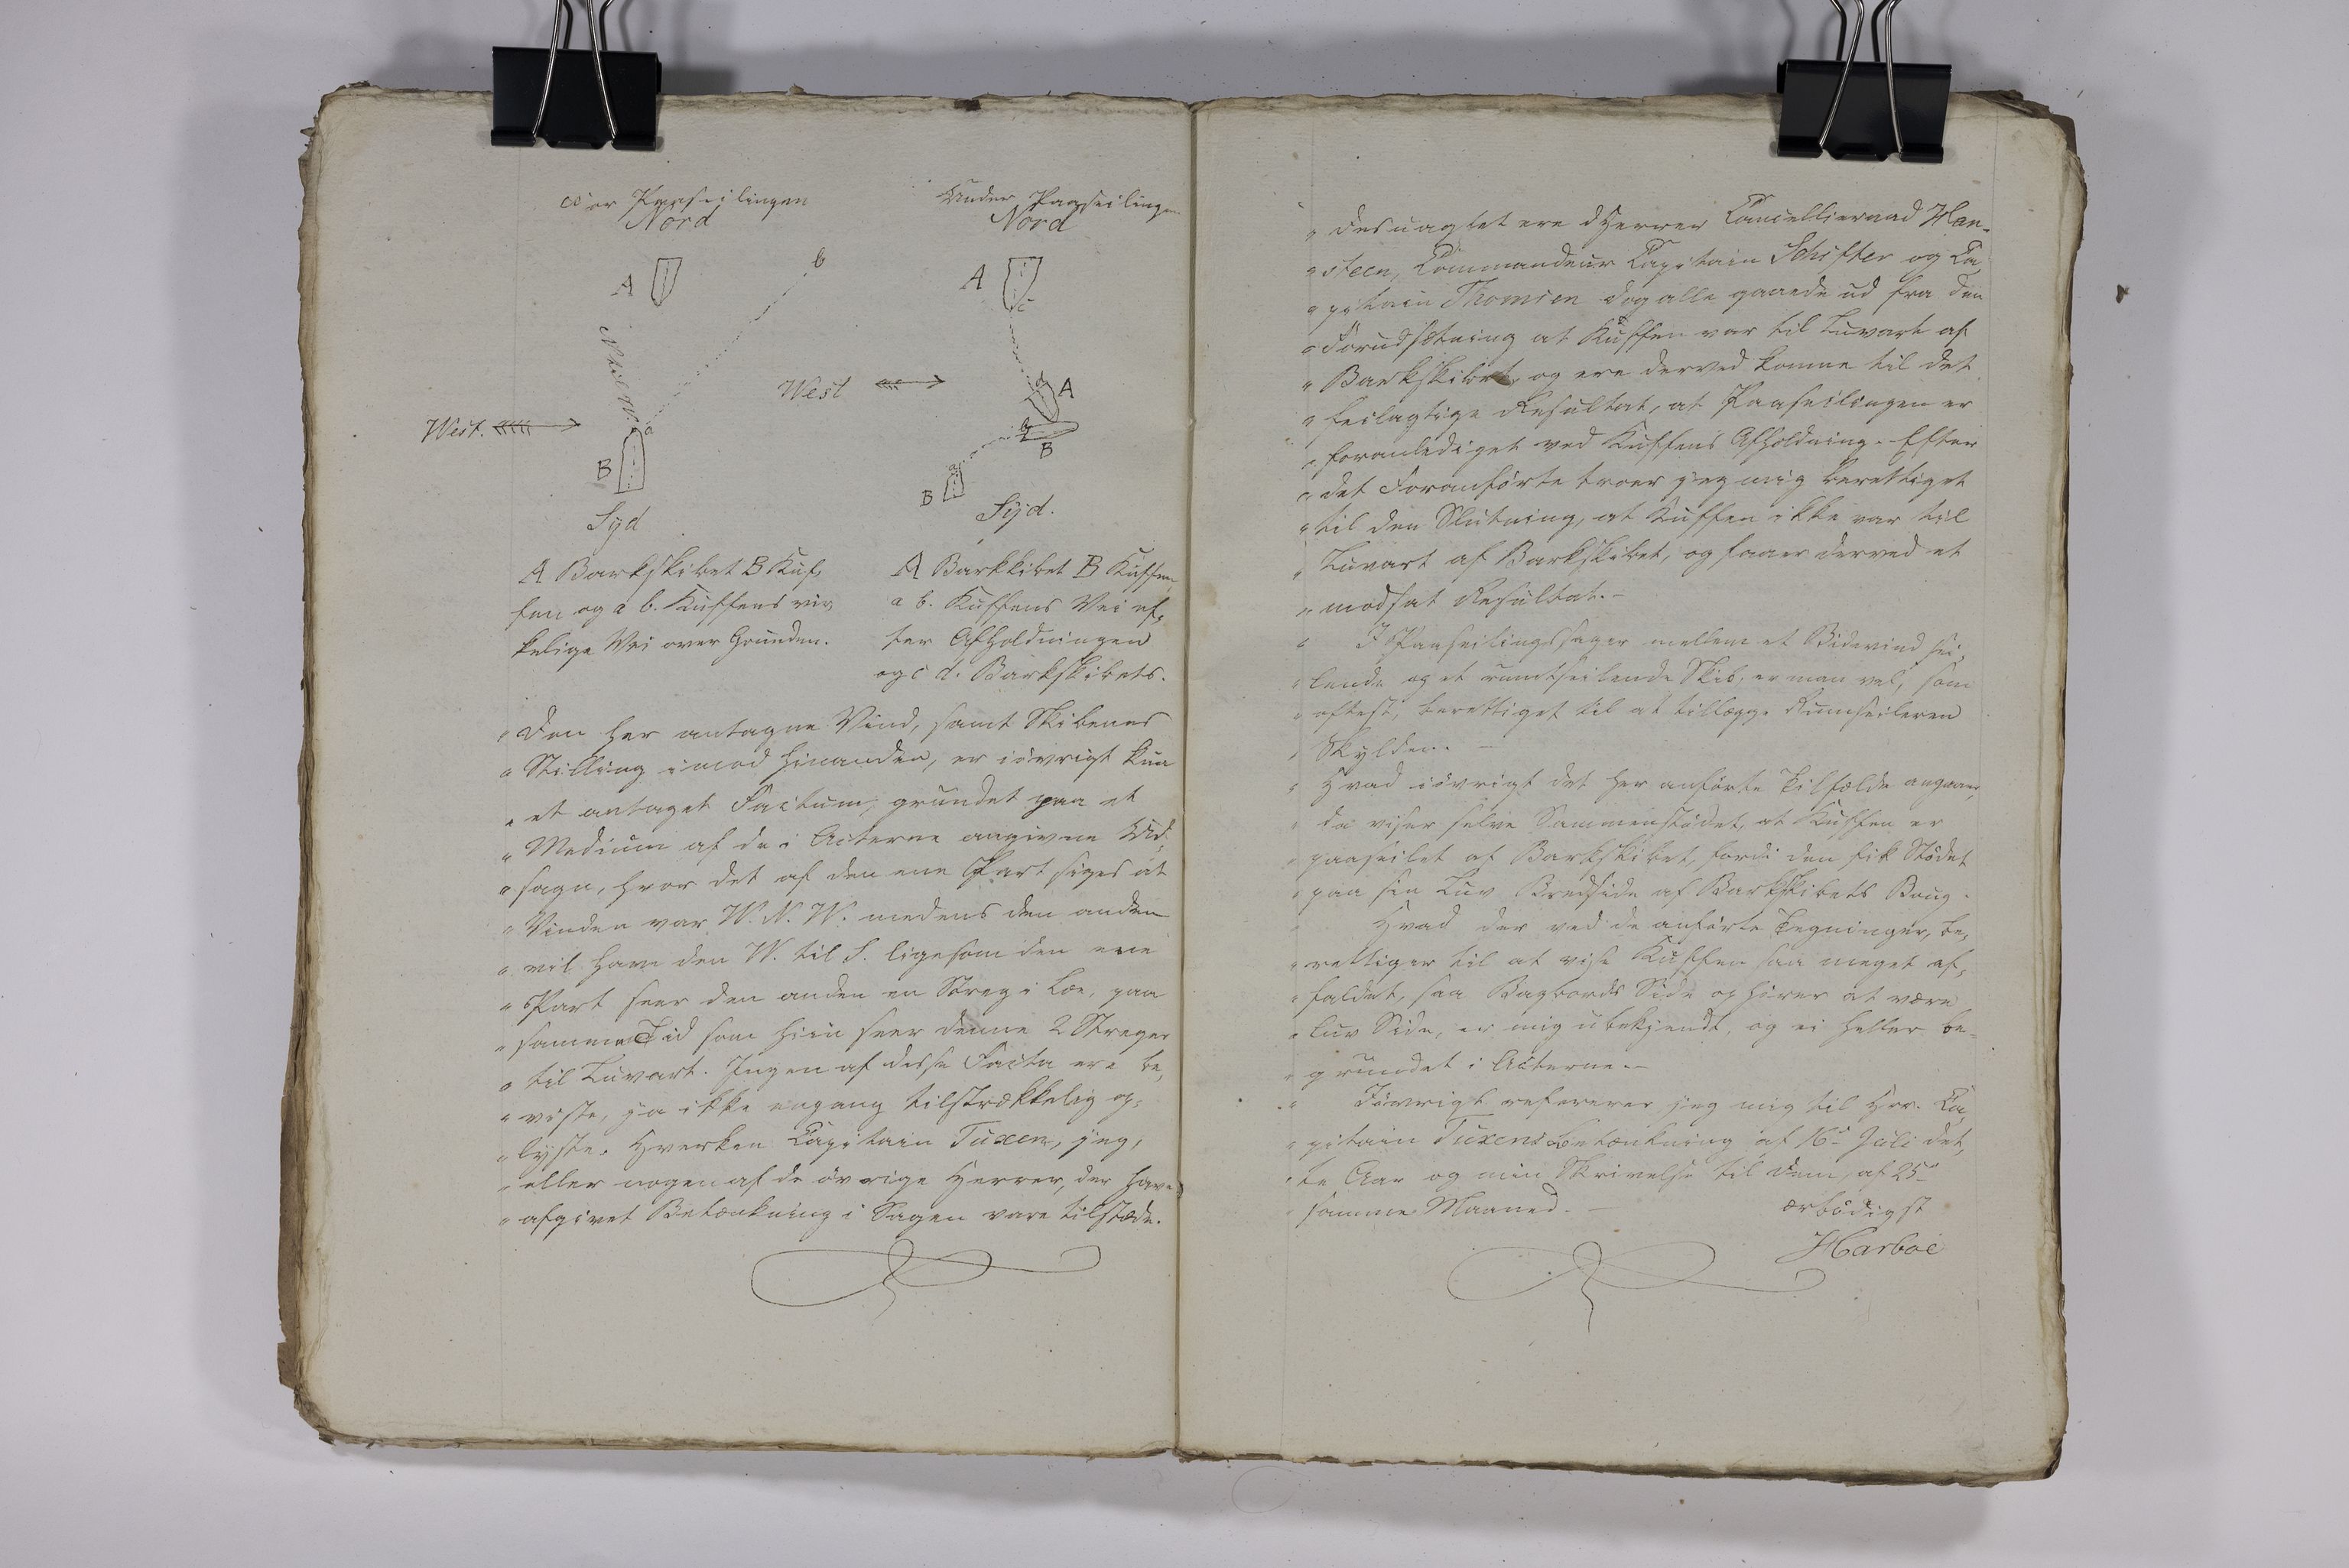 Før Paaseilingen
Nord
A
b
½ Mil
West.
a
B
Syd
A Barkskibet B Kuf,
fen og a b. Kuffens vir,
kelige Vei over Grunden.
Under Paaseilingen
Nord
A
c
West
d
A
b
B
a
B
Syd.
A Barkkibet B Kuffen
a b. Kuffens Vei ef,
ter Afholdningen
og c d. Barkskibets.
" Den her antagne Vind, samt Skibenes
" Stilling imod hinanden, er iøvrigt kun
" et antaget Factum, grundet paa et
" Medium af de i Acterne angivne Ud,
" sagn, hvor det af den ene Part siges at
" Vinden var W. N. W. medens den anden
" vil have den W. til S. ligesom den ene
" Part seer den anden en Streg i Læ, paa
" samme Tid som hiin seer denne 2 Streger
" til Luvart. Ingen af disse Facta ere be,
" viste, ja ikke engang tilstrækkelig op,
" lyste. Hverken Capitain Tuxen, jeg,
" eller nogen af de øvrige Herrer, der have
" afgivet Betænkning i Sagen vare tilstæde.
" desuagtet ere dHerrer Cancellieraad Han-
" steen, Commandeur Capitain Schifter og Ca
" pitain Thomsen dog alle gaaede ud fra den
" Forudsætning at Kuffen var til Luvart af
" Barkskibet, og ere derved komne til det
" feilagtige Resultat, at Paaseilingen er
" foranlediget ved Kuffens Afholdning. Efter
" det Foranførte troer jeg mig berettiget
" til den Slutning, at Kuffen ikke var til
" Luvart af Barkskibet, og faaer derved et
" modsat Resultat.-
" I Paaseilingssager mellem et Bidevind sei,
" lende og et rumtseilende Skib, er man vel, som
" oftest, berettiget til at tillægge Rumseileren
" Skylden. -
" Hvad iøvrigt det her anførte Tilfælde angaaer,
" da viser selve Sammenstødet, at Kuffen er
" paaseilet af Barkskibet, fordi den fik Stødet
" paa sin Luv Bredside af Barkskibets Boug.
" Hvad der ved de anførte Tegninger, be,
" rettiger til at vise Kuffen saa meget af,
" faldet, saa Bagbords Side ophører at være
" luv Side, er mig ubekjendt, og ei heller be-
" grundet i Acterne.-
" Iøvrigt refererer jeg mig til Hrr. Ca,
" pitain Tuxens Betænkning af 16de Juli det,
" te Aar og min Skrivelse til Dem, af 25de
" samme Maaned. -
ærbødigst
Harboe